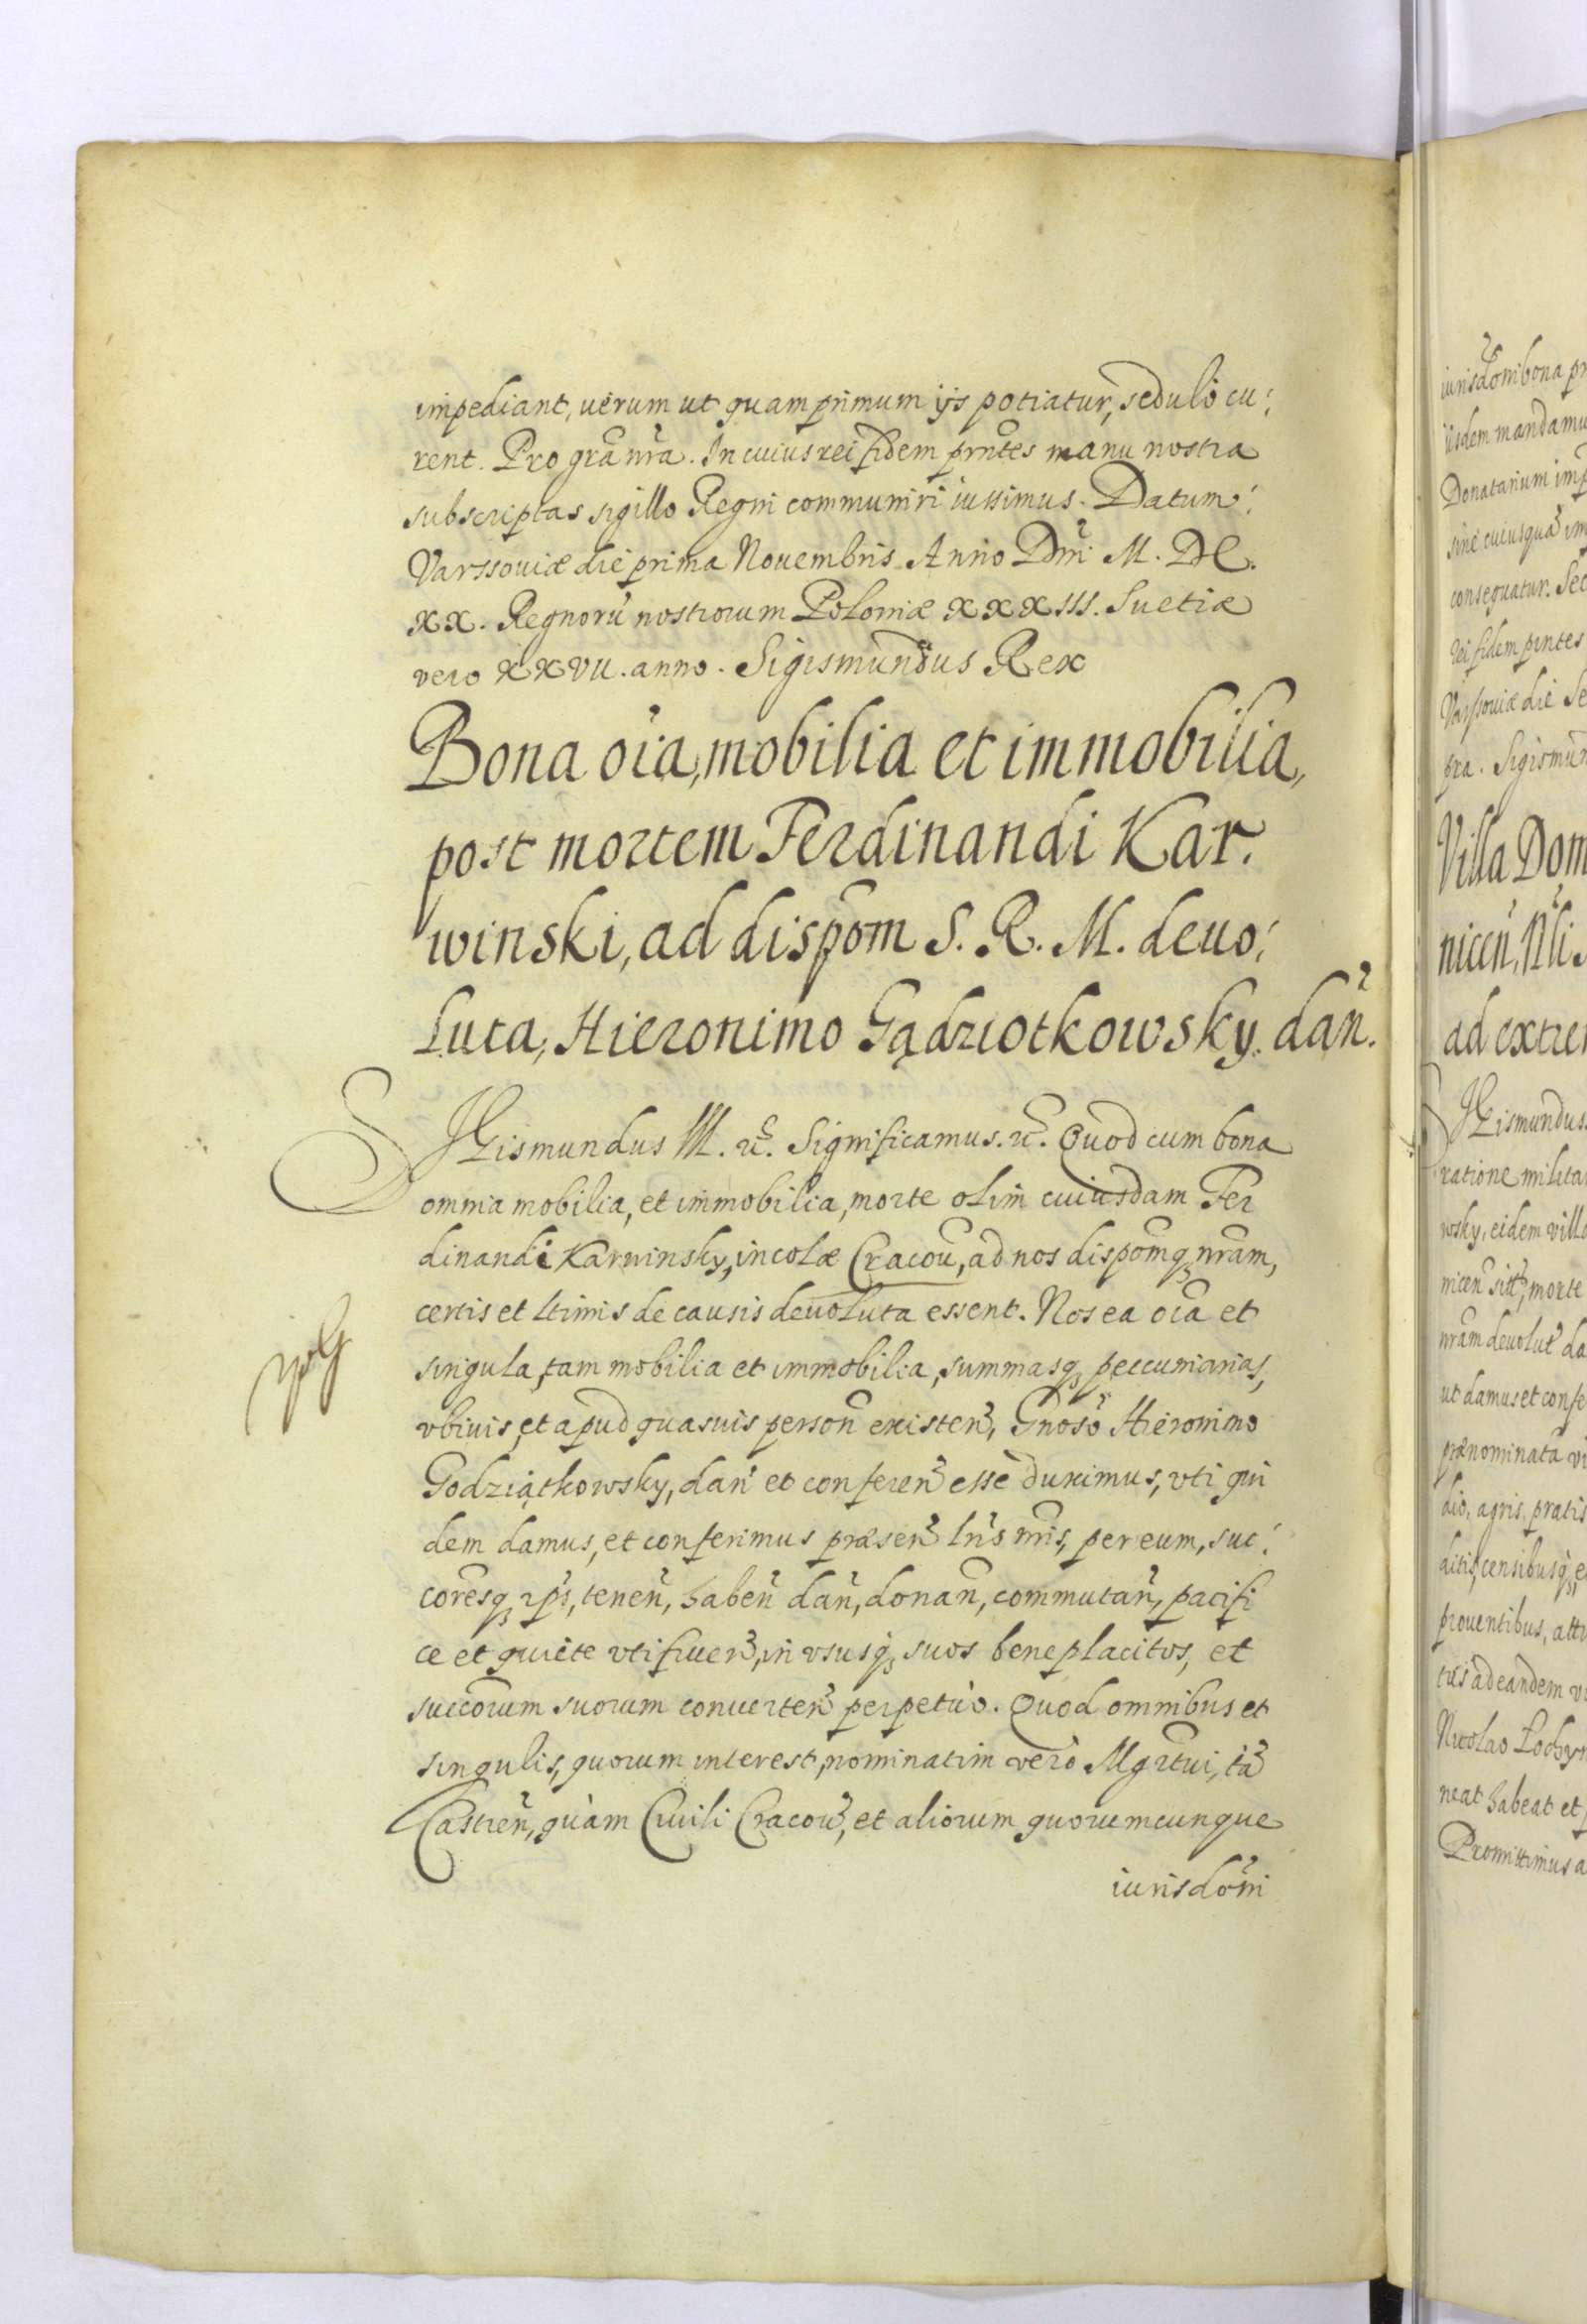 impediant, uerum ut quam primum ijs potiatur, sedulò cu:
rent. Pro grã nr̃a. In cuius rei fidem pr̃ntes manu nostra
subscriptas sigillo Regni communiri iussimus. Datum
Varssouiæ die prima Nouembris Anno Dñi M. DC.
XX. Regnorũ nostrorum Poloniæ XXXIII. Suetiæ
vero XXVII. anno. Sigismundus Rex
Bona oĩa, mobilia et immobilia,
post mortem Ferdinandi Kar:
winski, ad dispõm S. R. M. deuo:
luta, Hieronimo Gądziotkowsky. dañ.
SIGismundus III. etc. Significamus. etc. Quod cum bona
omnia mobilia, et immobilia, morte olim cuiusdam Fer
dinandi Karwinsky, incolæ Cracoũ, ad nos dispõmq₃ nr̃am,
certis et ltimis de causis deuoluta essent. Nos ea oĩa et
singula, tam mobilia et immobilia, summasq₃ peccuniarias,
vbiuis, et apud quasuis persoñ existeñ, Gñoso Hieronimo
Godziątkowsky, dañ et confereñ esse duximus, vti qui
dem damus, et conferimus præseñ lr̃is nr̃is, per eum, suc:
cõresq₃ ip̃s, teneñ, habeñ dañ, donañ, commutañ, pacifi
ce et quiete vtifrueñ, in vsusq₃ suos beneplacitos, et
succõrum suorum conuerteñ perpetuò. Quod omnibus et
singulis, quorum interest, nominatim verò Mgr̃tui, tã
Castreñ, quàm Ciuili Cracoũ, et aliorum quorumcunque
iurisdõni
iurisdõni bona
iisdem mandamu
Donatarium imp
sine cuiusquã im
consequatur.
rei fidem pr̃ntes
Varssouiæ die Se
pra. Sigismun
Villa Dom
niceñ,
ad extre
SIGismundus
ratione milita
wsky, eidem villa
niceñ sitã, morte
nr̃am deuolut̃ da
ut damus et confe
prænominatã vi
dio, agris, pratis
ditis, censibusq₃, e
prouentibus, atti
tus ad eandem vi
Nicolao
neat habeat et
Promittimus a